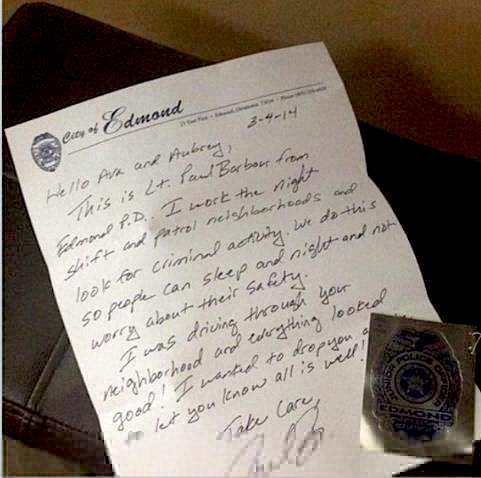 City of Edmond
3-4-14
Hello Ava and Aubrey,
This is Lt. Paul Barbour from
Edmond P.D. I work the night
shift and patrol neighborhoods and
look for criminal activity. We do this
so people can sleep and night and not
worry about their safety.
I was driving through your
neighborhood and everything looked
good! I wanted to drop you a
let you know all is well!
Take Care,
JUNIOR POLICE OFFICER
EDMOND